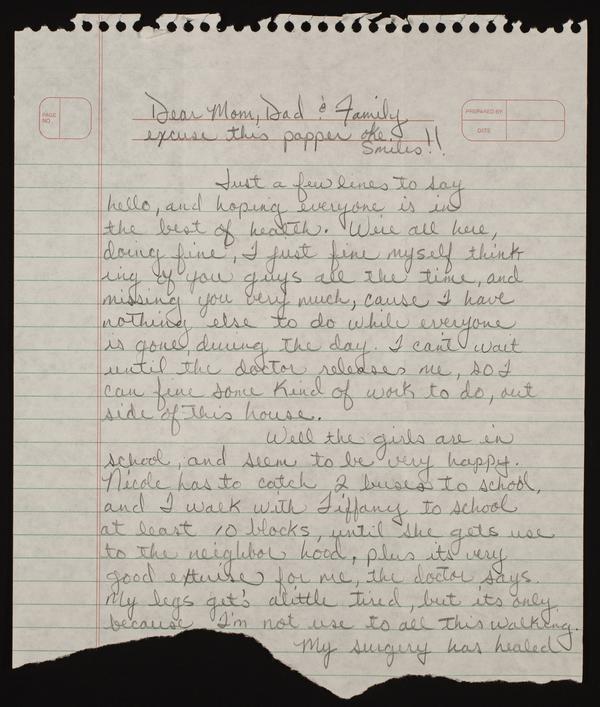 Dear Mom, Dad & Family
PAGE NO.
PREPARED BY
DATE
excuse this papper oke!
Smiles!!
Just a few lines to say
hello, and hoping everyone is in
the best of health. We're all here,
doing fine, I just fine myself think
ing of you guys all the time, and
missing you very much, cause I have
nothing else to do while everyone
is gone, during the day. I can't wait
until the doctor releases me, so I
can fine some kind of work to do, out
side of this house.
Well the girls are in
school, and seem to be very happy.
Nicole has to catch 2 buses to school,
and I walk with Tiffany to school
at least 10 blocks, until she gets use
to the neighbor hood, plus its very
good exterise for me, the doctor says.
My legs get's alittle tired, but it's only,
because I'm not use to all this walking.
My surgery has healed